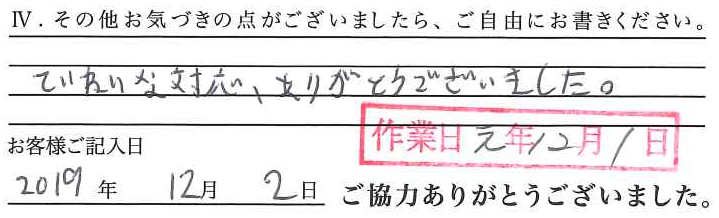 Ⅳ. その他お気づきの点がございましたら、ご自由にお書きください。
ていねいな対応、ありがとうございました。
作業日 元年12月1日
お客様ご記入日
2019年 12月 2日 ご協力ありがとうございました。